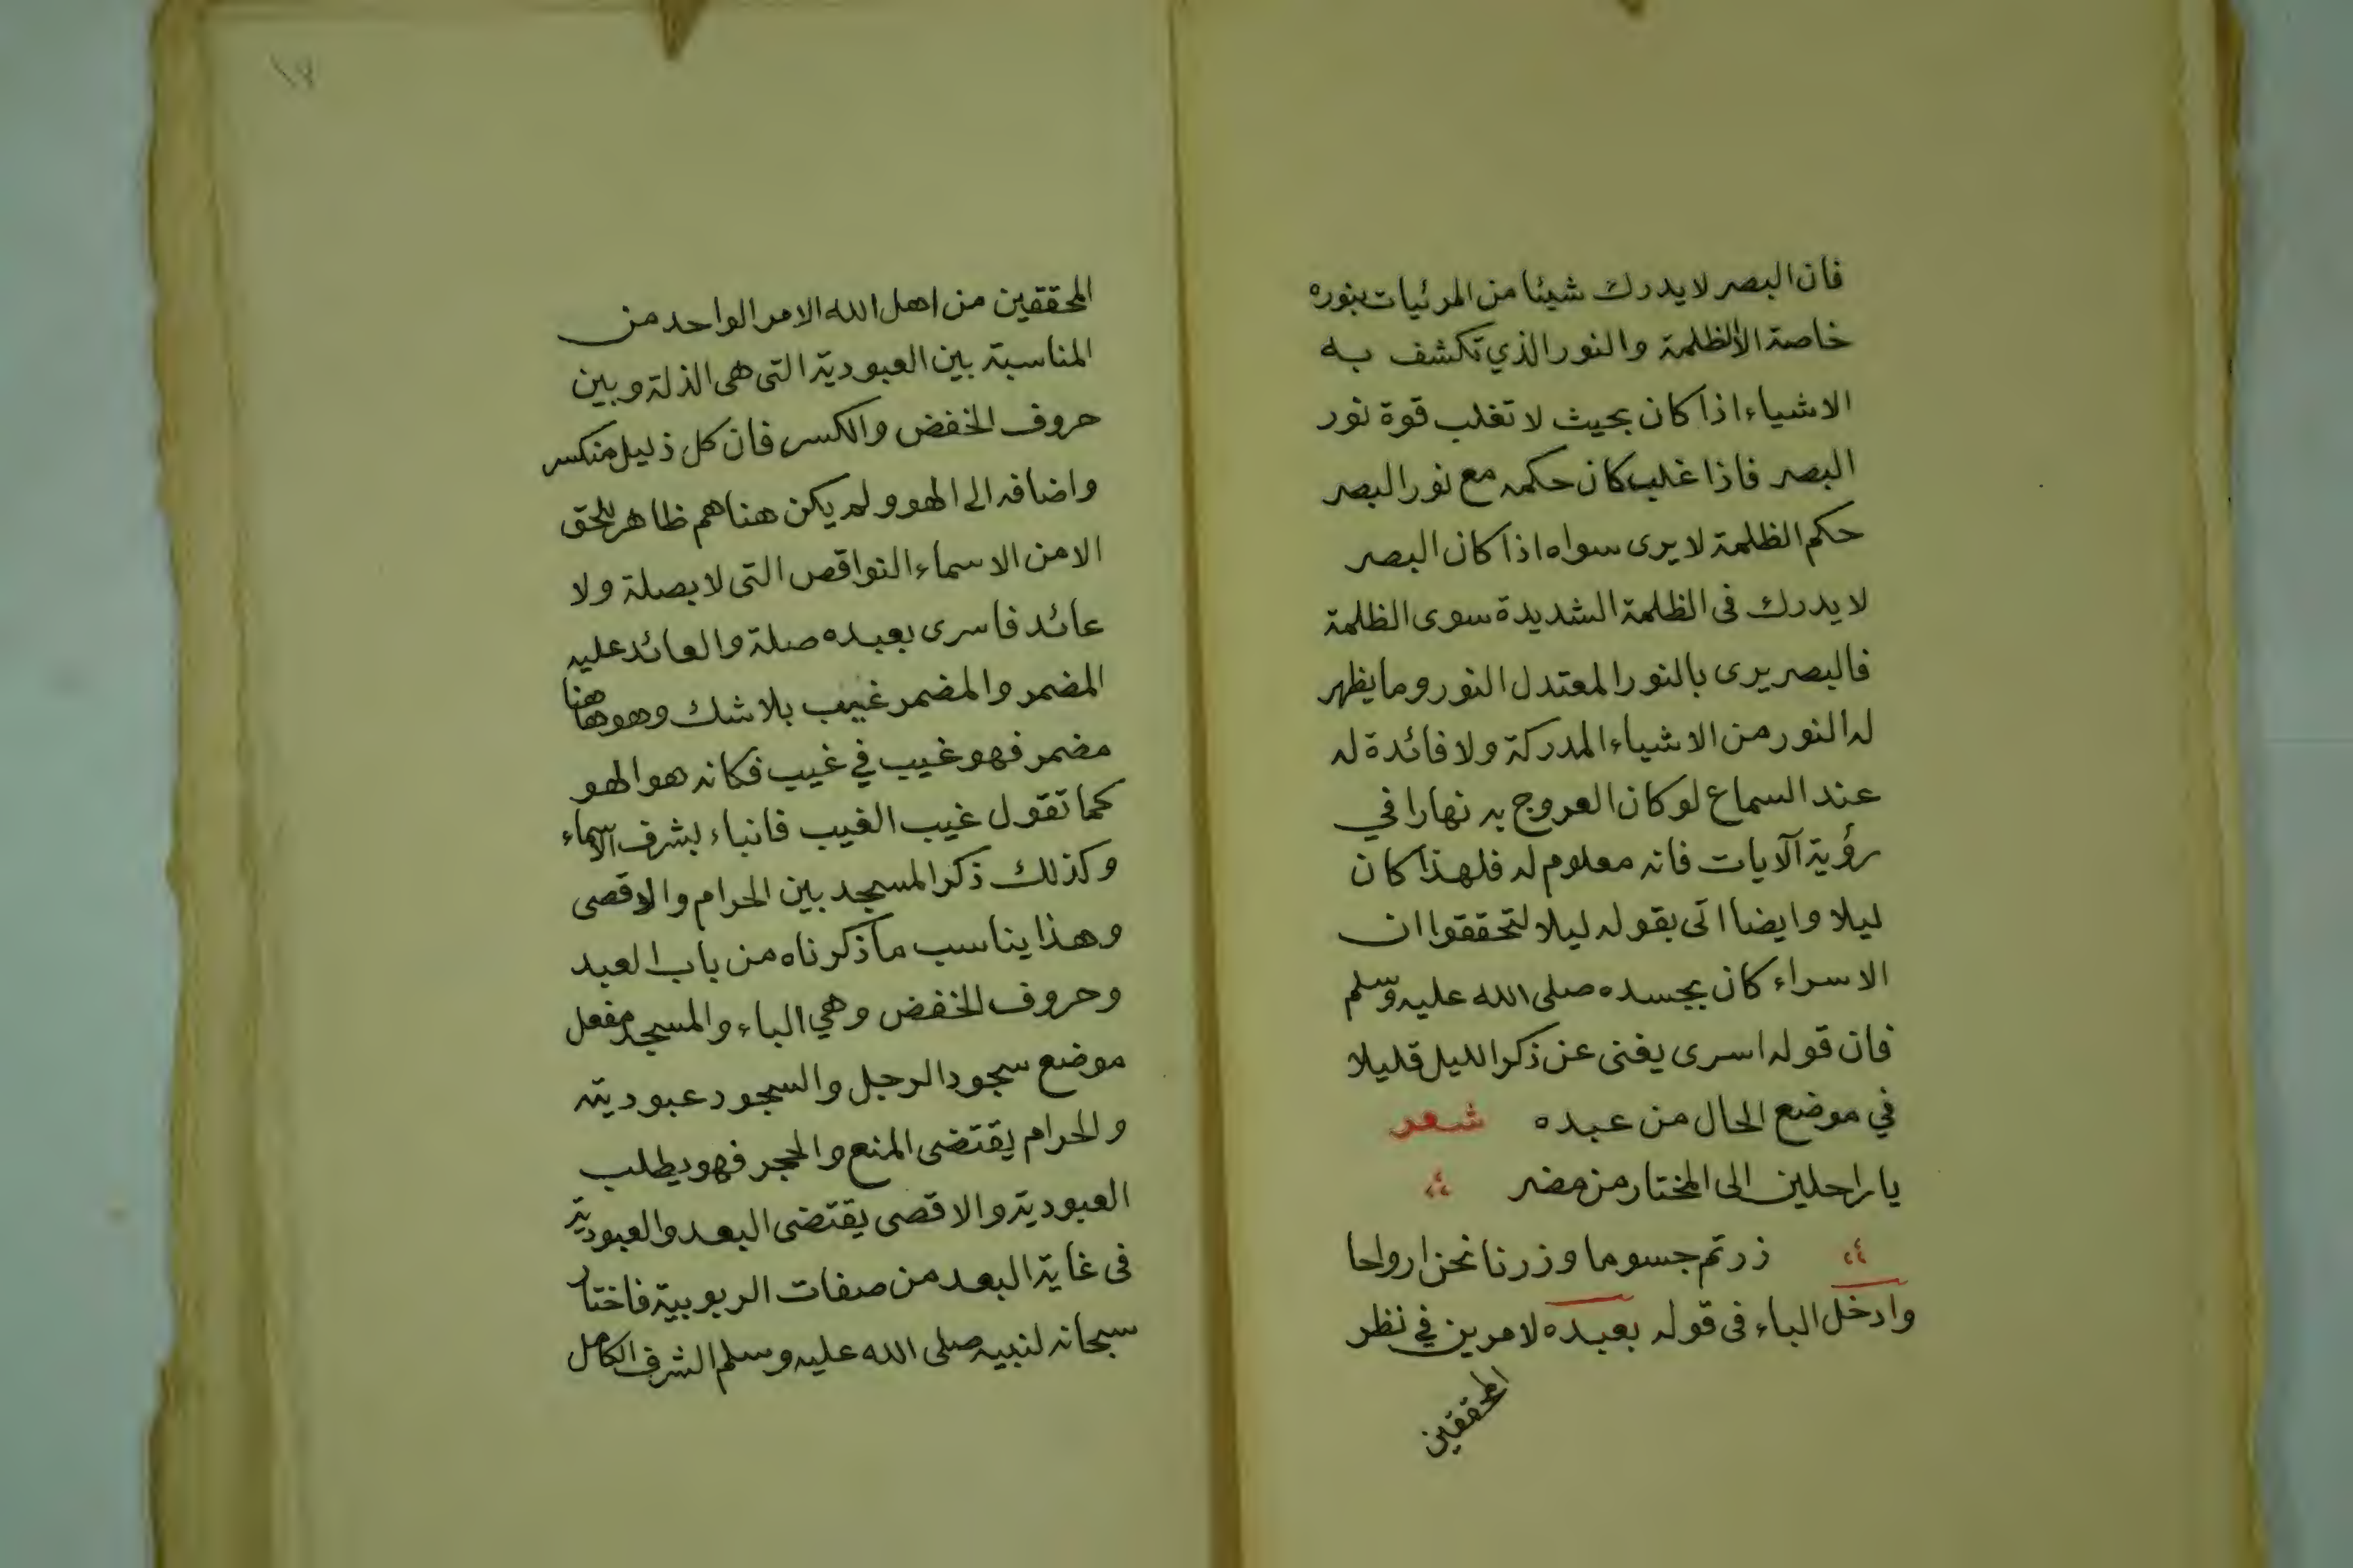 فان البصر لا يدرك شيئا من المرئيات بنوره
خاصة الا الظلمة والنور الذي تكشف به
الاشياء اذا كان بحيث لا تغلب قوة نور
البصر فاذا غلب كان حكمه مع نور البصر
حكم الظلمة لا يرى سواه اذا كان البصر
لا يدرك فى الظلمة الشديدة سوى الظلمة
فالبصر يرى بالنور المعتدل النور وما يظهر
له النور من الاشياء المدركة ولا فائدة له
عند السماع لو كان العروج به نهارا في
رؤية الآيات فانه معلوم له فلهذا كان
ليلا وايضا اتى بقوله ليلا لتحققوا ان
الاسراء كان بجسده صلى الله عليه وسلم
فان قوله اسرى يغنى عن ذكر الليل قليلا
في موضع الحال من عبده شعر
يا راحلين الى المختار من مضر
زرتم جسوما وزرنا نحن ارواحا
وادخل الباء فى قوله بعبده لامرين في نظر
المحققين
١٧
المحققين من اهل الله الامر الواحد من
المناسبة بين العبودية التى هى الذلة وبين
حروف الخفض والكسر فان كل ذليل منكسر
واضافه الى الهو ولم يكن هناهم ظاهر للحق
الا من الاسماء النواقص التى لا بصلة ولا
عائد فاسرى بعبده صلة والعائد عليه
المضمر والمضمر غيب بلا شك وهو هاهنا
مضمر فهو غيب في غيب فكانه هو الهو
كما تقول غيب الغيب فانباء بشرف الاسماء
وكذلك ذكر المسجد بين الحرام والاقصى
وهذا يناسب ما ذكرناه من باب العبد
وحروف الخفض وهي الباء والمسجد مفعل
موضع سجود الرجل والسجود عبوديته
والحرام يقتضى المنع والحجر فهو يطلب
العبودية والاقصى يقتضى البعد والعبودية
فى غاية البعد من صفات الربوبية فاختار
سبحانه لنبيه صلى الله عليه وسلم الشرف الكامل